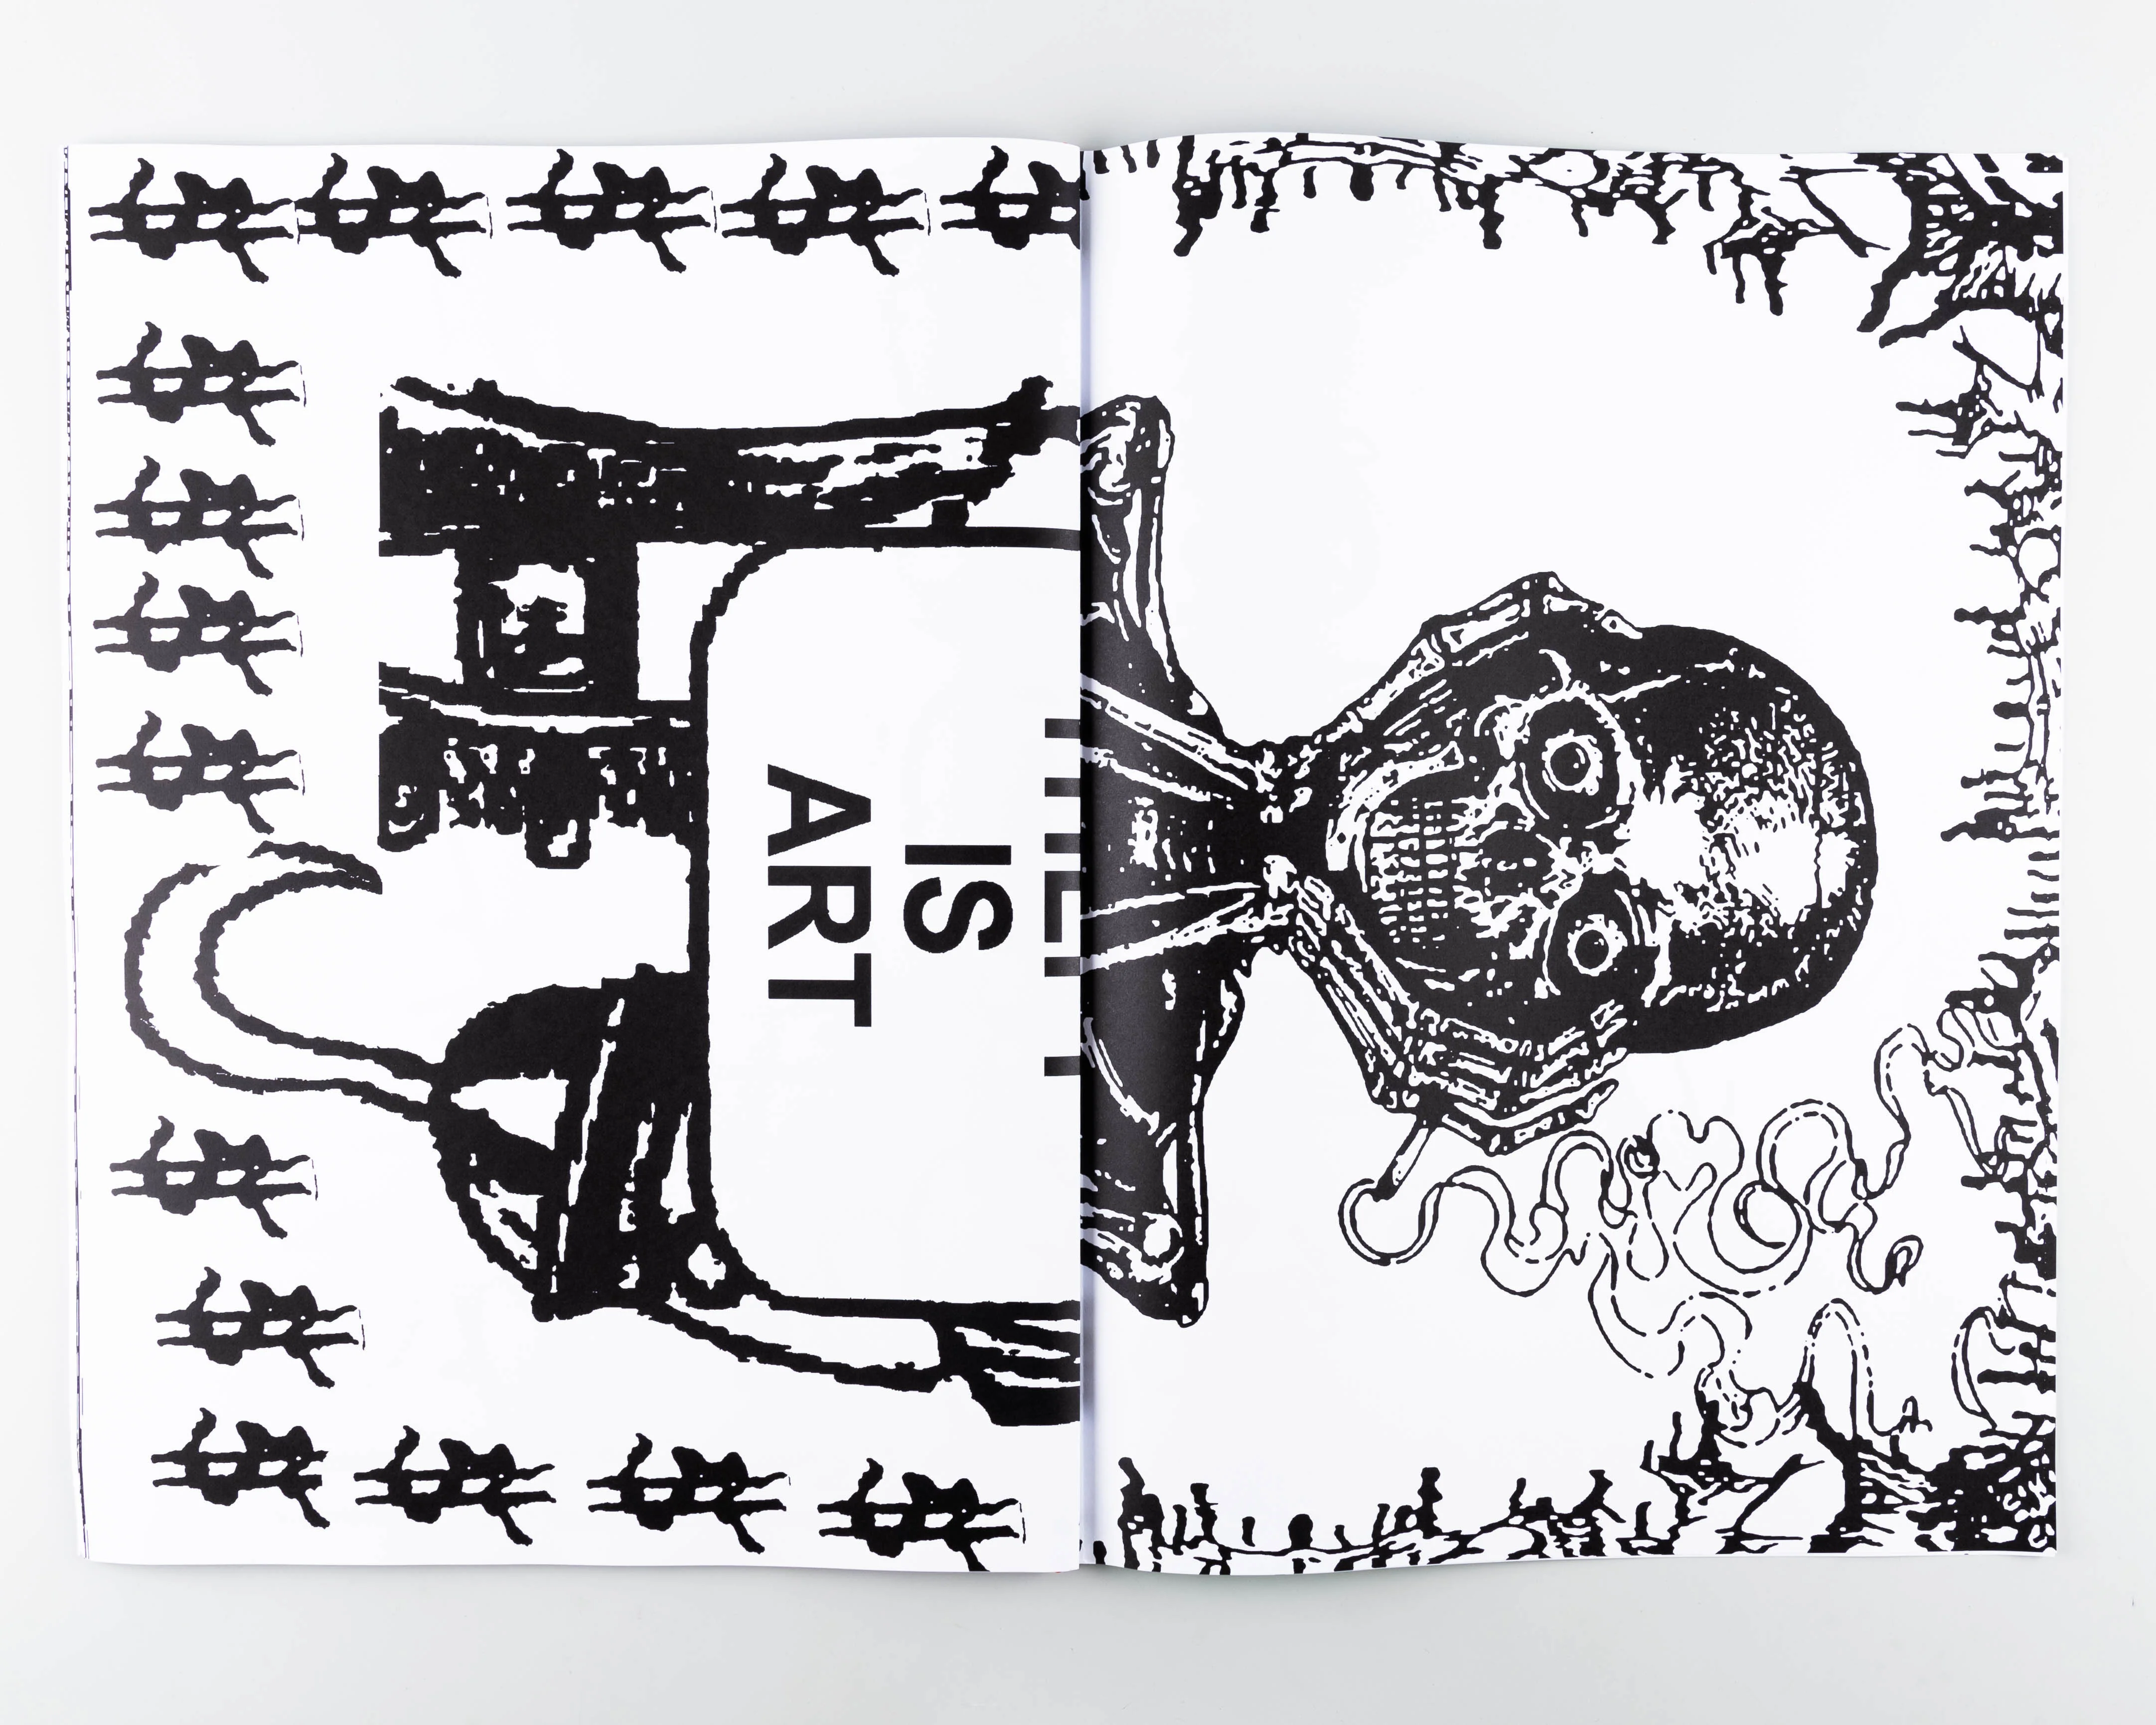 IS
ART